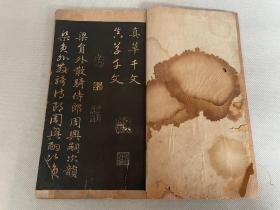 真草千文
真草千文
梁員外散騎侍郎周興嗣次韻
梁員外散騎侍郎周興嗣次韻